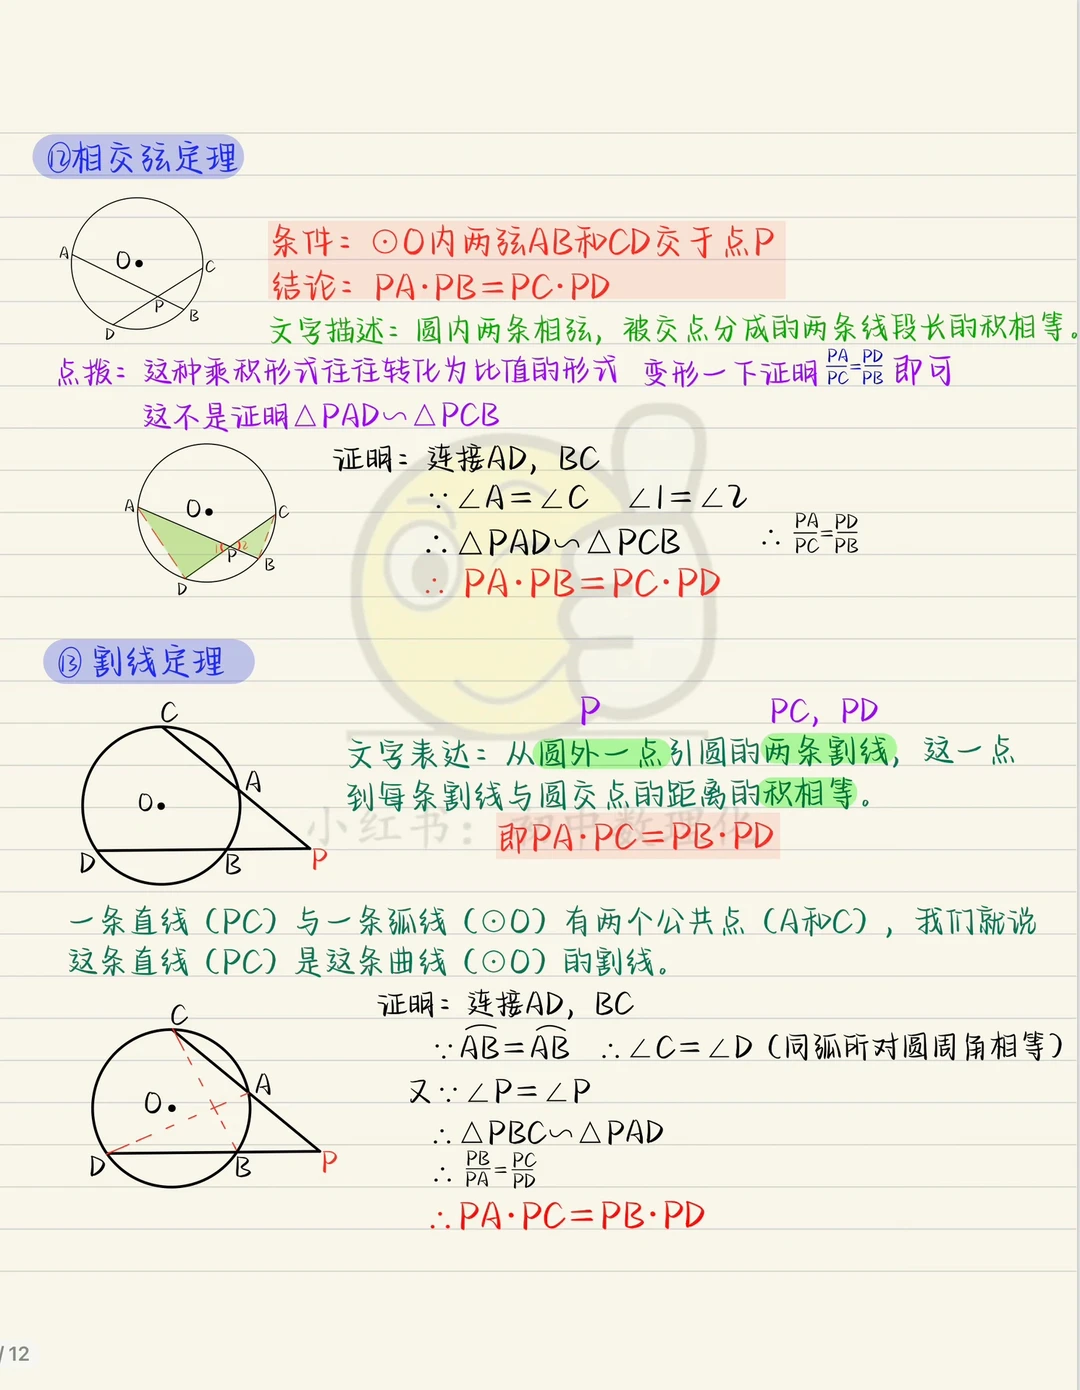 ⑫相交弦定理
A O C P B D
条件：⊙O内两弦AB和CD交于点P
结论：PA·PB=PC·PD
文字描述：圆内两条相弦，被交点分成的两条线段长的积相等。
点拨：这种乘积形式往往转化为比值的形式 变形一下证明PA/PC=PD/PB即可
这不是证明△PAD∽△PCB
A O C 1 2 P B D
证明：连接AD，BC
∵∠A=∠C ∠1=∠2
∴△PAD∽△PCB ∴PA/PC=PD/PB
∴PA·PB=PC·PD
⑬割线定理
C A O D B P
P PC，PD
文字表达：从圆外一点引圆的两条割线，这一点
到每条割线与圆交点的距离的积相等。
小红书：初中数理化
即PA·PC=PB·PD
一条直线（PC）与一条弧线（⊙O）有两个公共点（A和C），我们就说
这条直线（PC）是这条曲线（⊙O）的割线。
C A O D B P
证明：连接AD，BC
∵AB=AB ∴∠C=∠D（同弧所对圆周角相等）
又∵∠P=∠P
∴△PBC∽△PAD
∴PB/PA=PC/PD
∴PA·PC=PB·PD
/12